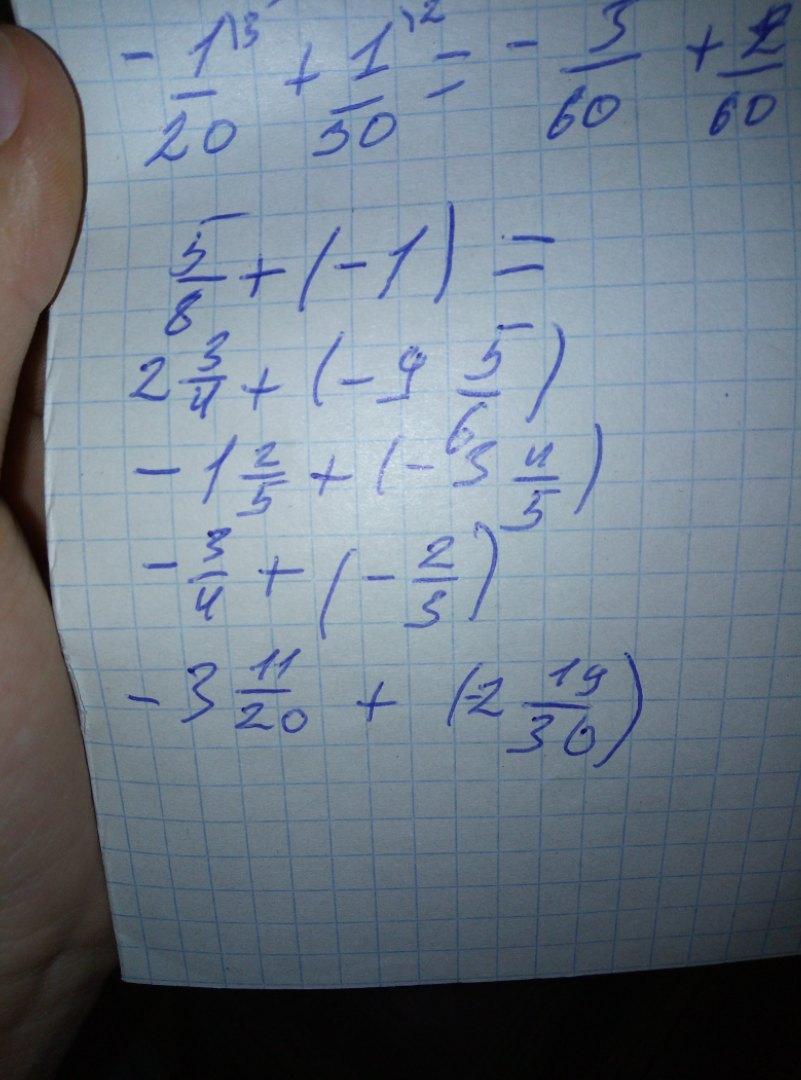 - 1\3/20 + 1\2/30 = - 3/60 + 2/60
5/8 + (-1) =
2 3/4 + (-9 5/6)
- 1 2/5 + (-3 4/5)
- 3/4 + (- 2/3)
- 3 11/20 + (-2 19/30)